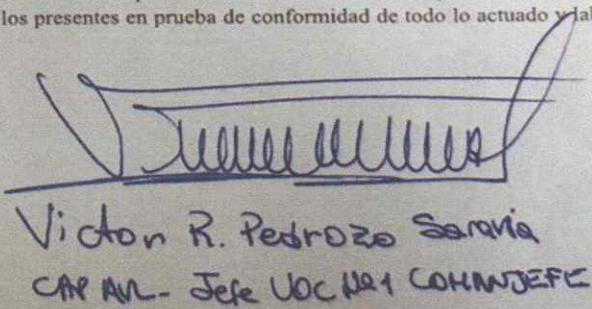 los presentes en prueba de conformidad de todo lo actuado y lab
Victor R. Pedrozo Saravia
CAP AV- Jefe UOC Nº1 COMANJEFE